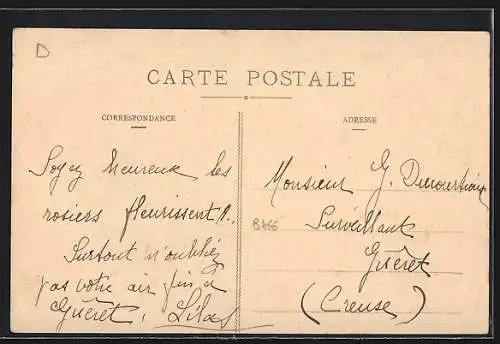 D
CARTE POSTALE
CORRESPONDANCE
ADRESSE
Soyez heureux, les
rosiers fleurissent !..
Surtout n'oubliez
pas votre air fin à
Guéret. Lilas
Monsieur G.
Surveillant
Guéret
(Creuse)
B466